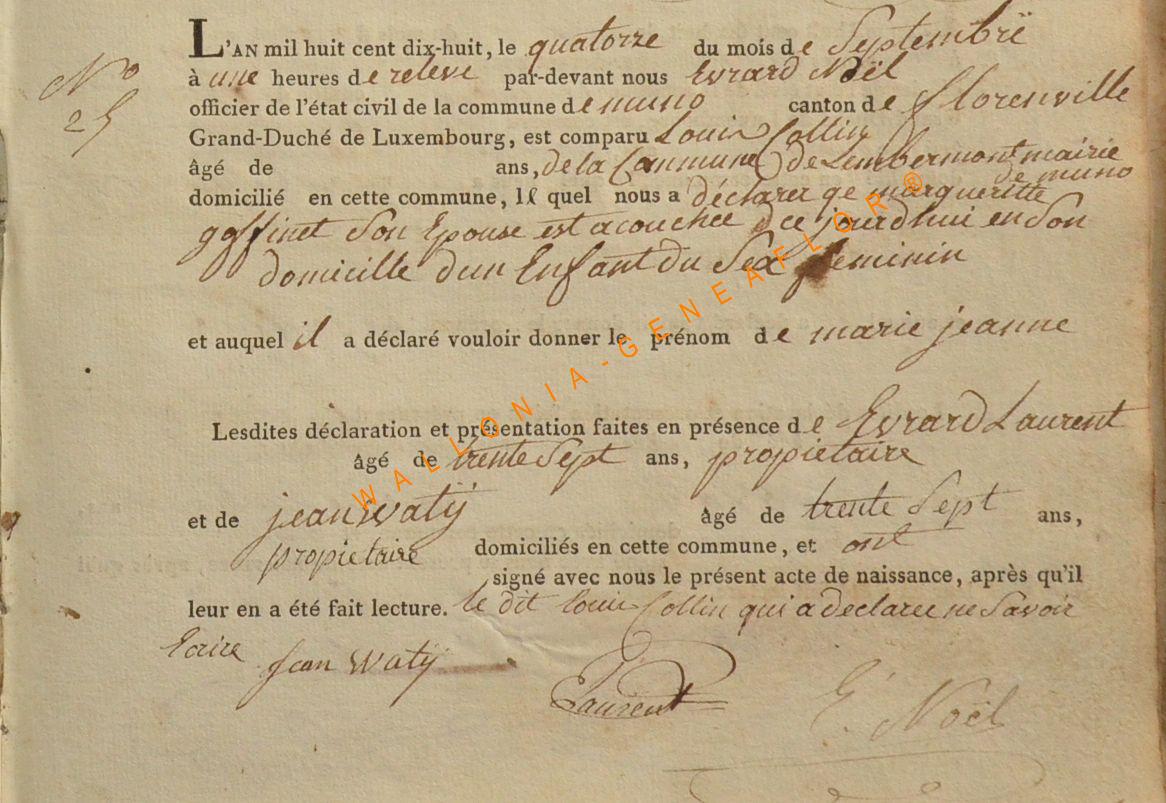 L'AN mil huit cent dix-huit, le quatorze du mois de Septembrë
N° 25
à une heures de relevé par-devant nous Evrard Noël
officier de l'état civil de la commune de muno canton de florenville
Grand-Duché de Luxembourg, est comparu Louis Collin
âgé de ans, de la Commune de Lembermont mairie
de muno
domicilié en cette commune, lequel nous a déclarer qe margueritte
goffinet Son Epouse est acouchee dce jourdhui en Son
domicille dun Enfant du Sex feminin
et auquel il a déclaré vouloir donner le prénom de marie jeanne
Lesdites déclaration et présentation faites en présence de Evrard Laurent
âgé de trente Sept ans, propietaire
et de jean watÿ âgé de trente Sept ans,
propietaire domiciliés en cette commune, et ont
signé avec nous le présent acte de naissance, après qu'il
leur en a été fait lecture. le dit louis Collin qui a declaree ne Savoir
Ecrire
Jean Watÿ
E Laurent
E. Noël
WALLONIA-GENEAFLOR®